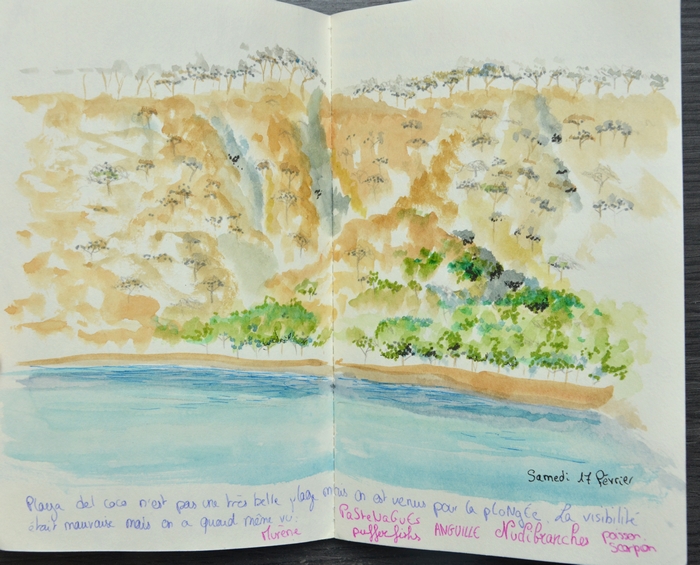 Samedi 17 Février
Playa del coco n'est pas une très belle plage mais on est venus pour la pLoNgÉe. La visibilité
était mauvaise mais on a quand même vu:
Murène PaSteNaGuEs pufferfishs ANGUILLE Nudibranches poisson
Scorpion